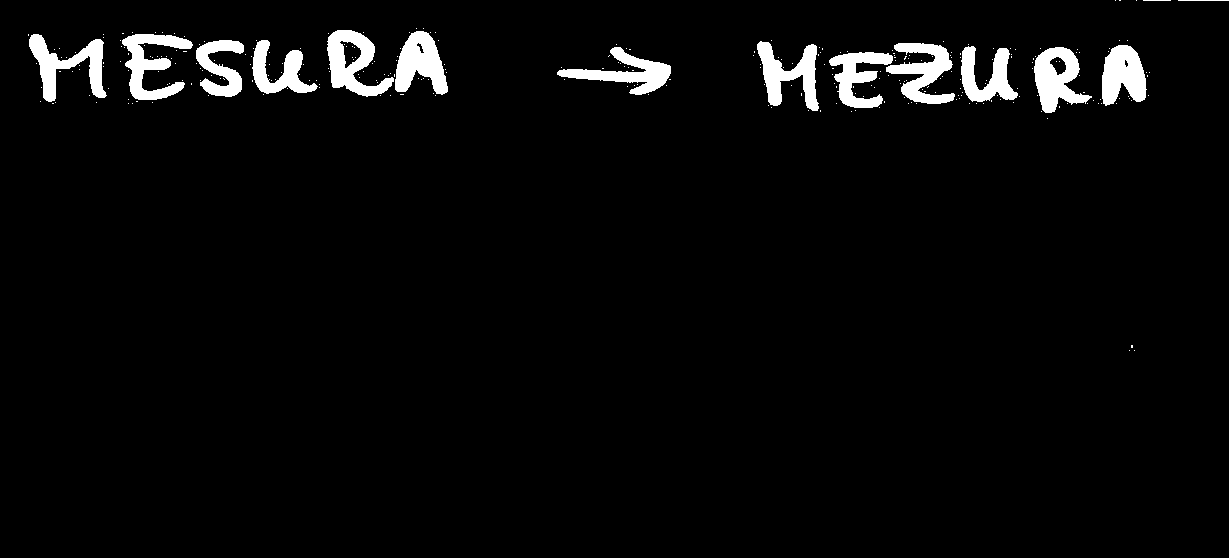 MESURA → MEZURA